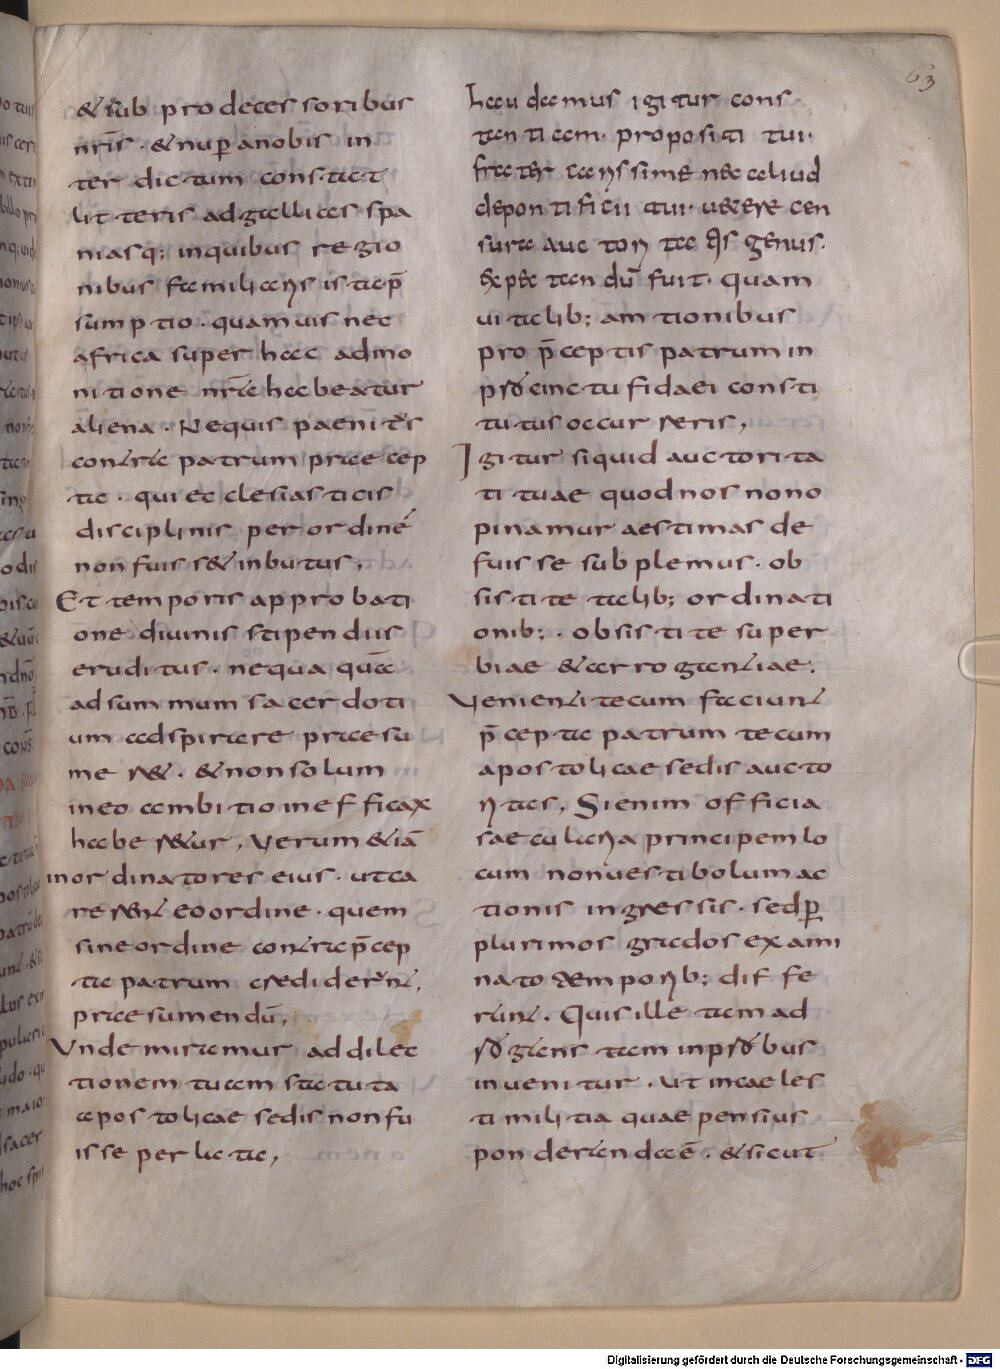 63
& sub prodecessoribus
nr̅is · & nuꝑ anobis in
ter dictum constat
litteris ad gallicas spa
niasq; inquibus regio
nibus familiaris ista p̅
sumptio · quamuis nec
africa super hac admo
nitione nr̅a habeatur
aliena · Nequis paenitr̅s
contra patrum praecep
ta · qui ecclesiasticis
disciplinis per ordine̅
non fuisset inbutus,
Et temporis approbati
one diuinis stipendiis
eruditus · nequaqua̅
adsummum sacerdoti
um adspirare praesu
meret · & non solum
ineo ambitio inefficax
haberetur, Verum &ia̅
inordinatores eius · ut ca
rerent eo ordine · quem
sine ordine contra p̅cep
ta patrum crediderint,
praesumendu̅,
Vnde miramur ad dilec
tionem tuam statuta
apostolicae sedis non fu
isse perlata,
haudamus igitur cons
tantiam · propositi tui ·
frater carissime nec aliud
depontificii tui · uetere cen
sura auctoritatis genus ·
expectandu̅ fuit · Quam
ui talib; amtionibus
pro p̅ceptis patrum in
procinctu fidaei consti
tutus occurreris,
Igitur siquid auctorita
ti tuae quod nos nono
pinamur aestimas de
fuisse subplemus · ob
siste talib; ordinati
onib; · Obsistite super
biae & arrogantiae ·
Venienti tecum faciunt
p̅cepta patrum tecum
apostolicae sedis aucto
ritas, Si enim officia
saecularia principem lo
cum non uestibolum ac
tionis ingressis · sed ꝑ
plurimos gradus exami
nato temporib; diffe
runt. Quis ille tam ad
rogans tam inprobus
inuenitur · Ut in caeles
ti militia quae pensius
ponderanda e̅ · & sicut
Digitalisierung gefördert durch die Deutsche Forschungsgemeinschaft - DFG